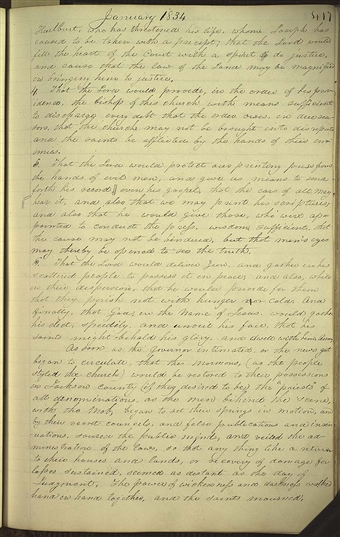 January 1834
417
Hurlburt, who has threatened his life, whom Joseph has
caused to be taken with a precept; that the Lord would
fill the heart of the Court with a spirit to do justice,
and cause that the law of the land may be magnified
in bringing him to justice.
4. That the Lord would provide, in the order of his prov-
idence, the bishop of this church with means sufficient
to discharge every debt that the order owes, in due sea-
son, that the church may not be brought into disrepute
and the saints be afflicted by the hands of their en-
emies.
5. That the Lord would protect our printing press from
the hands of evil men, and give us means to send
forth his even his gospel, that the ears of all may
hear it, and also that we may print his scriptures;
and also that he would give those, who were ap-
pointed to conduct the press, wisdom sufficient, that
the cause may not be hindered, but that men's eyes
may thereby be opened to see the truth.
That the Lord would deliver Zion, and gather in his
scattered people, to possess it in peace; and also, while
in their dispersion, that he would provide for them
that they perish not with hunger nor cold. And
finally, that God, in the name of Jesus, would gather
his elect speedily, and unveil his face, that his
saints might behold his glory, and dwell with him. Amen.
As soon as the Governor's the news got
began to circulate, that the mormons, (as the people
styled the church) would be restored to their possessions
in Jackson county (if they desired to be) the "priests" of
all denominations, as the men behind the scene,
with the mob, began to set their springs in motion, and
by their secret councils, and false publications and insin-
uations, soured the public mind, and the ad-
ministration of the laws, so that any thing like a return
to their houses and lands, or recovery of damages for
losses sustained, seemed as distant as the day of
judgment. The power of wickedness and darkness walked
hand in hand together, and the saints mourned.